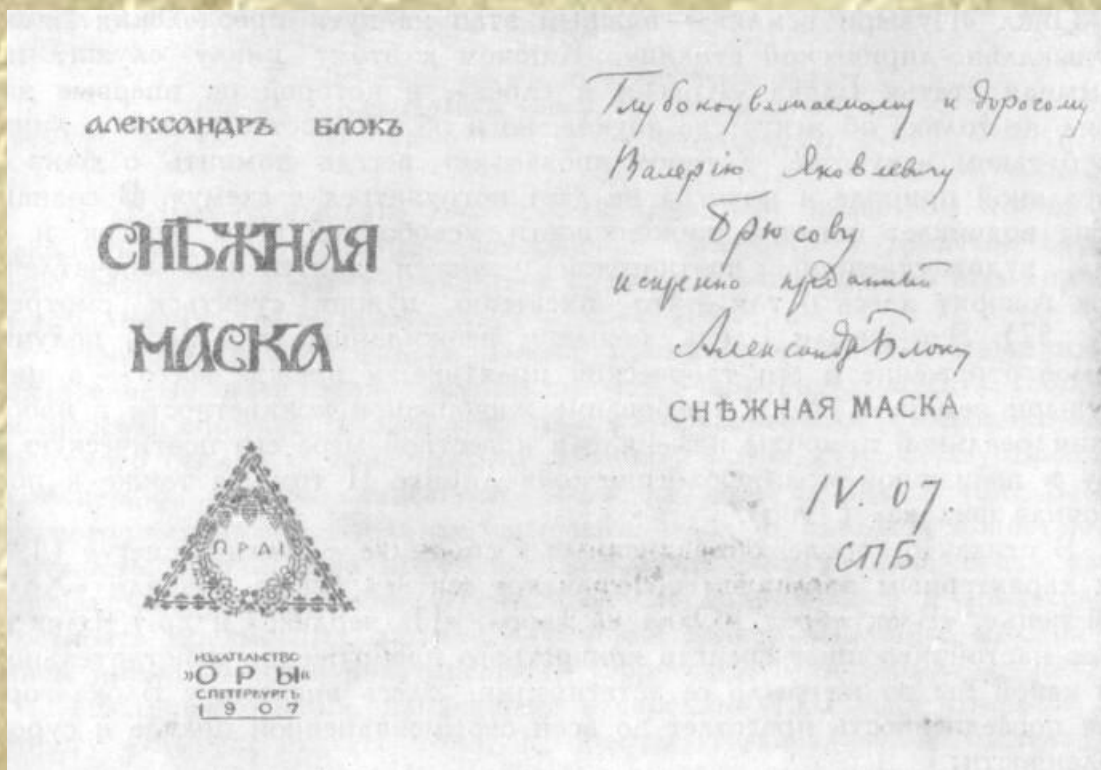 АЛЕКСАНДРЪ БЛОКЪ
СНѢЖНАЯ
МАСКА
ΩΡΑΙ
ИЗДАТЕЛЬСТВО
»ОРЫ«
С.ПЕТЕРБУРГЪ
1907
Глубокоуважаемому и дорогому
Валерію Яковлевичу
Брюсову
искренно преданный
Александръ Блокъ
СНѢЖНАЯ МАСКА
IV. 07
СПБ